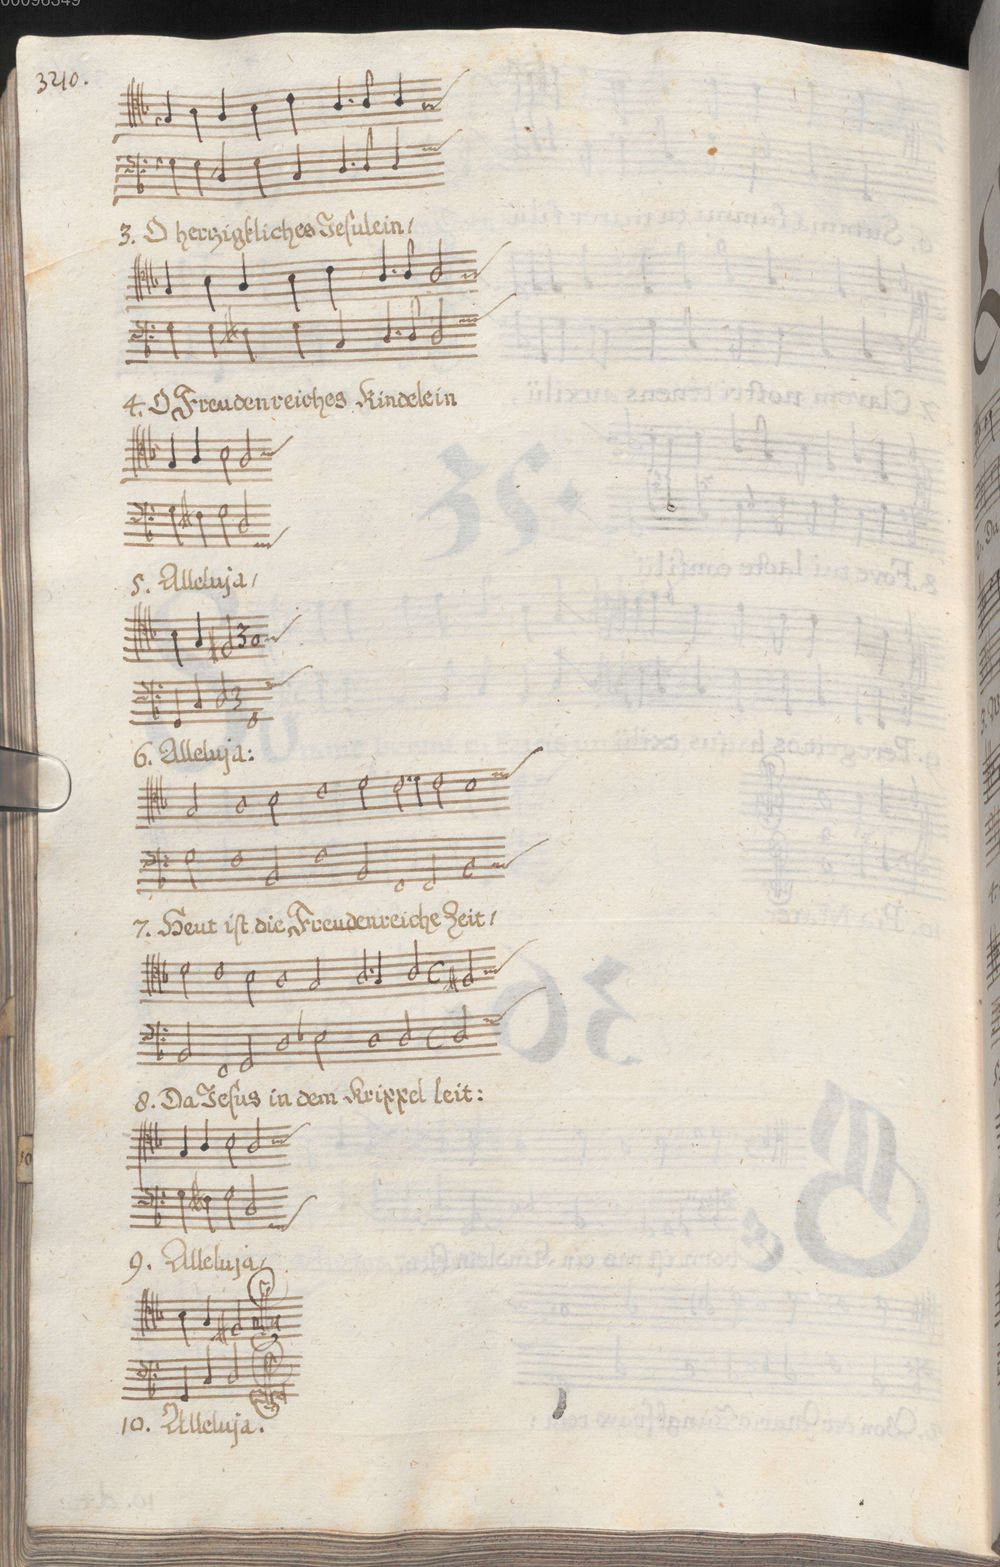 00096349
3210.
3. O herzigkliches Jesulein/
4. O Freudenreiches Kindelein
5. Alleluja/
6. Alleluja:
7. Heut ist die Freudenreiche Zeit/
8. Da Jesus in dem Krippel leit:
9. Alleluja/
10. Alleluja.